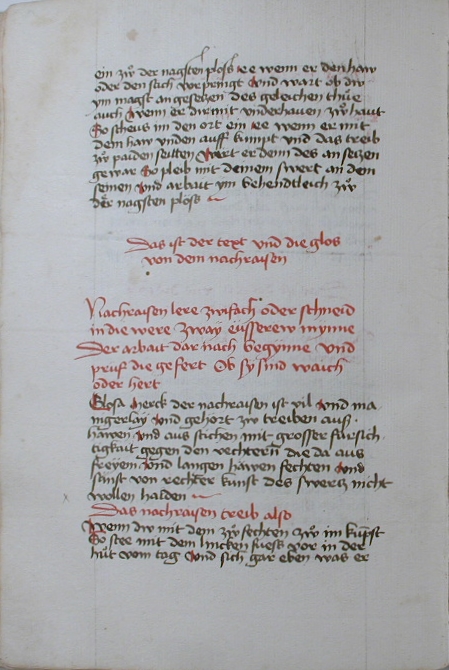 ein zẘ der nagsten ploss ee wenn er den haw
oder den stich vorpringt Vnd wart ob dw
ym magst angesetzen des geleichen thue
auch Wenn er dir mit vnderhauen zẘ haut
So scheus im den ort ein ee wenn er mit
dem haw vnden auff kumpt vnd das treib
zẘ paiden seitten Wert er denn des an setzen
gewar So pleib mit deinem swert an dem
seinen Vnd arbait ym behendtleich zẘ
der nagsten ploss
Das ist der text vnd die glos
von dem nachraisen
Nachraisen lere zwifach oder schneid
in die were zway eusserew mynne
Der arbait dar nach begynne Vnd
pruf die gefert Ob sy sind waich
oder hert
Glosa Merck der nachraisen ist vil Vnd ma¬
nigerlay Vnd gehort zw treiben aus
häwen Vnd aus stichen mit grosser fürsich¬
tigkait gegen den vechtern die da aus
freyen Vnd langen häwen fechten Vnd
sunst von rechter kunst des swertz nicht
wollen halden
Das nachraisen treib also
Wenn dw mit dem zẘfechten zẘ im kumpst
So stee mit dem lincken fuess vor in der
hut vom tag Vnd sich gar eben was er